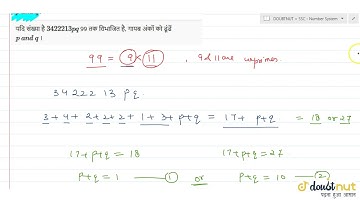 DOUBTNUT > SSC - Number System
यदि संख्या है 3422213pq 99 तक विभाजित है, गायब अंकों को ढूंढें
p and q ।
99 = 9 × 11 , 9 & 11 are coprimes.
3 4 2 2 2 1 3 p q
3 + 4 + 2 + 2 + 2 + 1 + 3 + p + q = 17 + p + q = 18 or 27
17 + p + q = 18 17 + p + q = 27
p + q = 1 — ① or p + q = 10 — ②
doubtnut
पढ़ना हुआ आसान